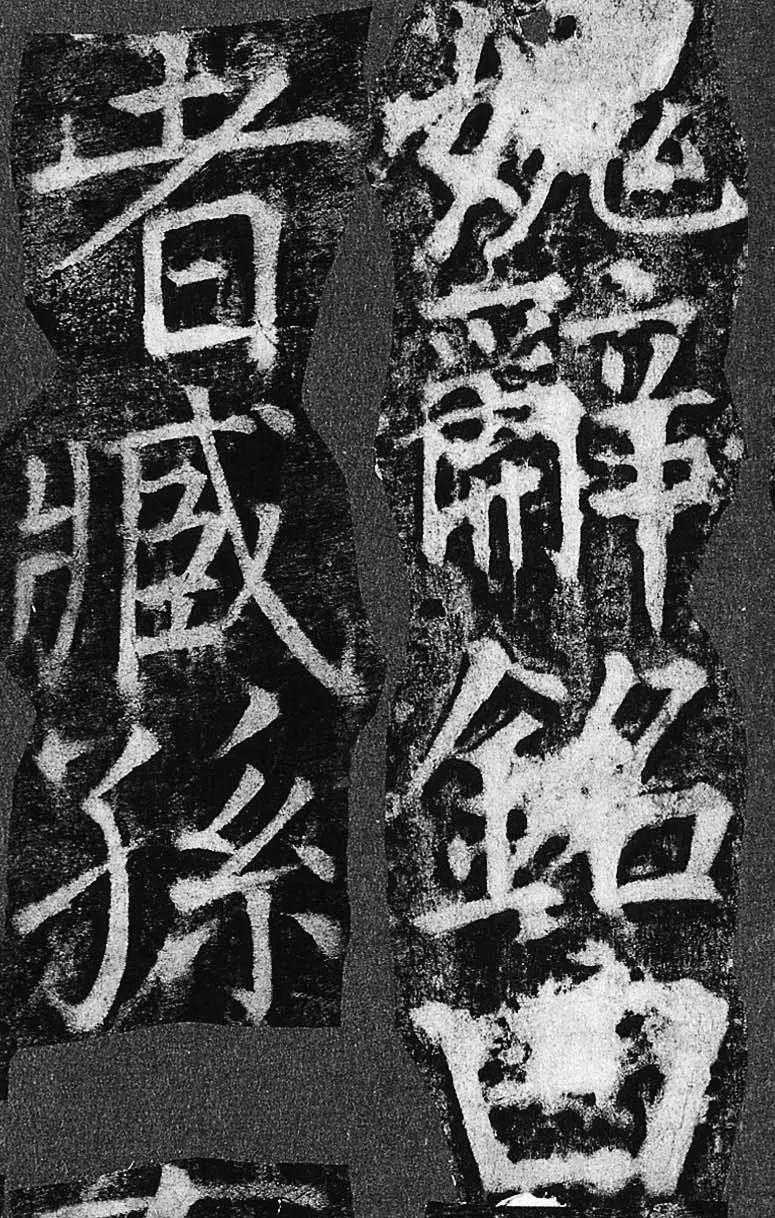 媿辭銘曰
者臧孫